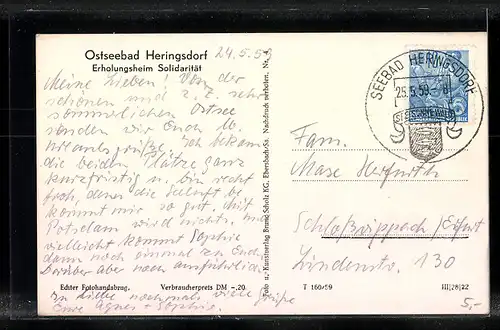 Ostseebad Heringsdorf 24.5.5
Erholungsheim Solidarität
Meine Lieben! Von der
schönen und z. Z. sehr
sommerlichen Ostsee
senden wir Euch lb.
bekam
die beiden Plätze ganz
kurzfristig u. bin recht
froh, denn die Seeluft be
kommt mir so gut. Mit
Potsdam wird nichts, und
vielleicht kommt Sophie
dann noch einmal zu Euch.
Darüber aber noch ausführlich.
In Liebe nochmals viele Grüße
Eure Agnes + Sophie
Echter Fotohandabzug. Verbraucherpreis DM -.20
Foto u. Kunstverlag Bruno Scholz KG, Ebersbach-Sa. Nachdruck verboten. Nr. 4
SEEBAD HERINGSDORF
25.5.59.-8
Fam.
Max Herfurth
Schloßvippach/Erfurt
Lindenstr. 130
T 160/59 III|28|22
5,-